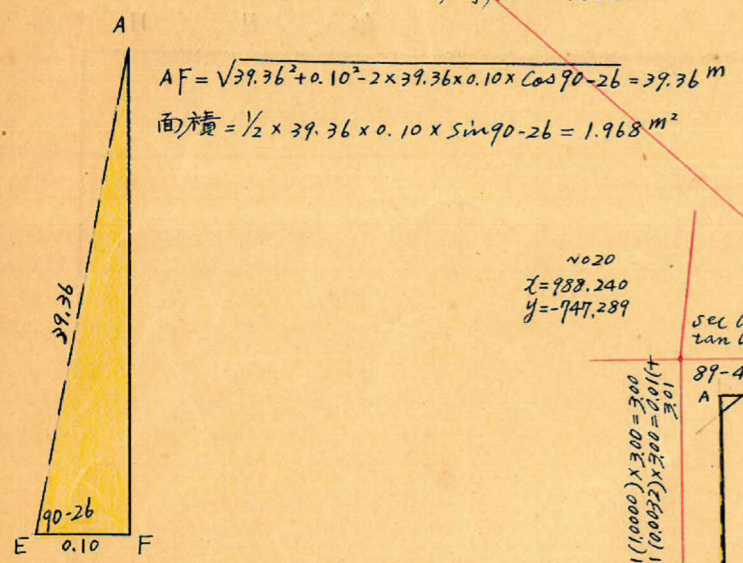 A
AF=√39.36²+0.10²-2×39.36×0.10×Cos90-26 =39.36 m
面積=1/2×39.36×0.10×Sin90-26=1.968 m²
39.36
90-26
E 0.10 F
No20
X=988.240
Y=-747.289
sec
tan
89-4
A
(1.0000)×3.00=3.00
(0.0032)×3.00=0.01(+
3.01